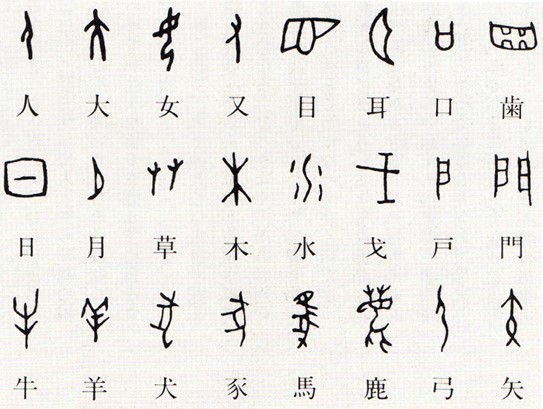 人 大 女 又 目 耳 口 歯
日 月 草 木 水 戈 戸 門
牛 羊 犬 豕 馬 鹿 弓 矢